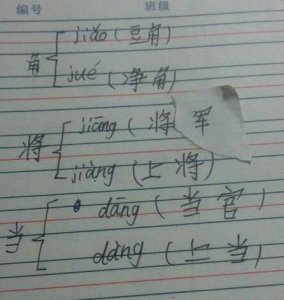 编号 班级
角 jiǎo (豆角)
jué (净角)
将 jiāng (将军)
jiàng (上将)
当 dāng (当官)
dàng (上当)